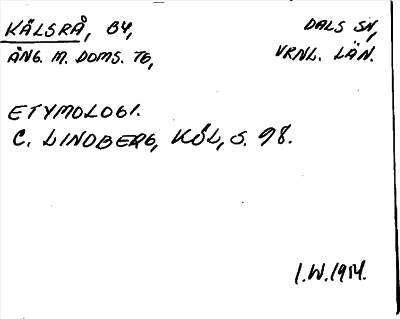 KÄLSRÅ, BY, DALS SN,
ÅNG. M. DOMS. TG, VRNL. LÄN.
ETYMOLOGI.
C. LINDBERG, KÖL, S. 98.
I.W. 1914.